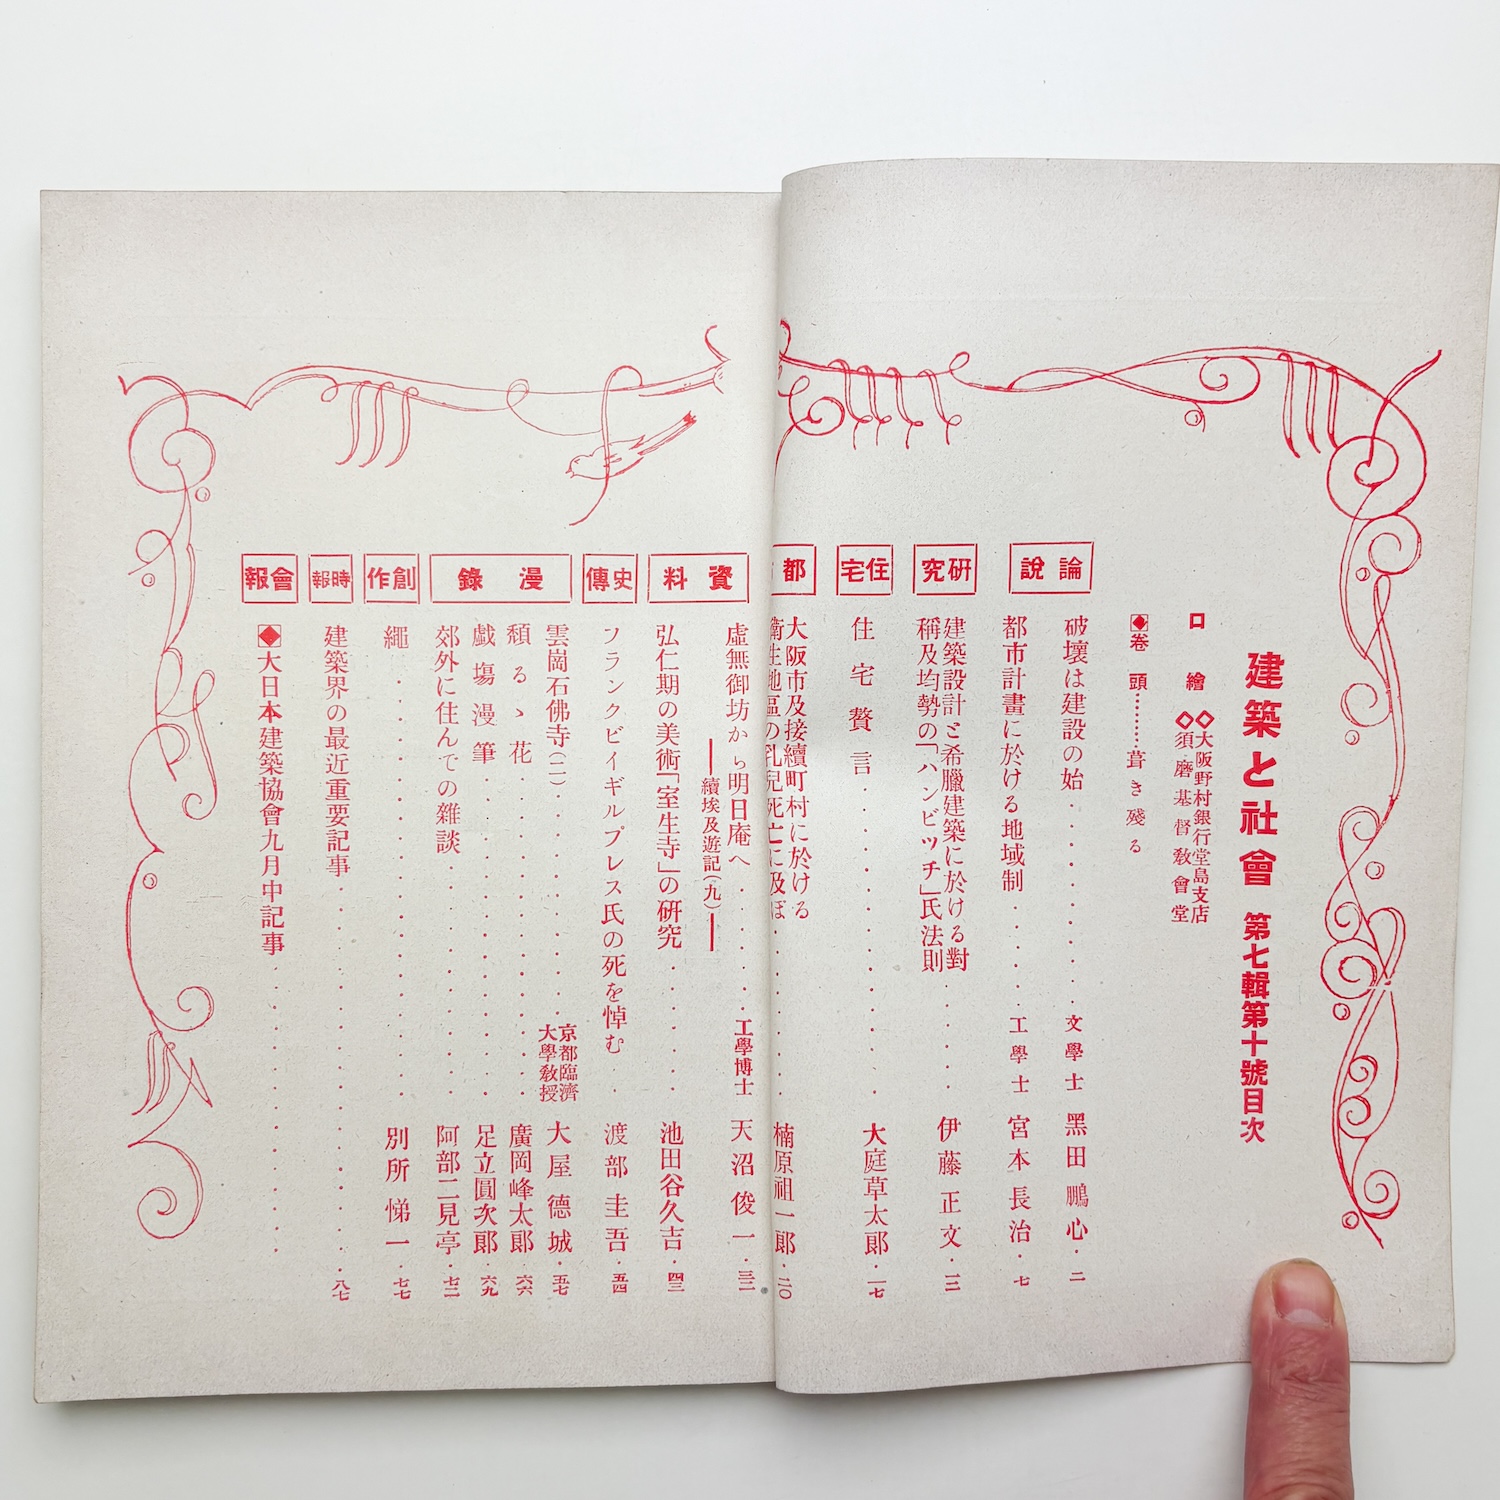 建築と社會 第七輯第十號目次
口繪
◇大阪野村銀行堂島支店
◇須磨基督教會堂
卷頭………葺き殘る
論說
破壞は建設の始 文學士 黑田鵬心 二
都市計畫に於ける地域制 工學士 宮本長治 七
研究
建築設計と希臘建築に於ける對
稱及均勢の「ハンビッチ」氏法則 伊藤正文 一二
住宅
住宅贅言 大庭草太郎 一七
都
大阪市及接續町村に於ける
衛生地區の乳兒死亡に及ぼ 楠原祖一郎 二〇
資料
虛無御坊から明日庵へ 工學博士 天沼俊一 三二
―續埃及遊記(九)―
弘仁期の美術「室生寺」の硏究 池田谷久吉 四三
史傳
フランクビイギルプレス氏の死を悼む 渡部圭吾 五四
漫錄
雲崗石佛寺(二) 京都臨濟大學敎授 大屋德城 五七
頽るゝ花 廣岡峰太郎 六六
戲場漫筆 足立圓次郎 六九
郊外に住んでの雜談 阿部二見亭 七二
創作
繩 別所悌一 七七
時報
建築界の最近重要記事 八七
會報
◆大日本建築協會九月中記事